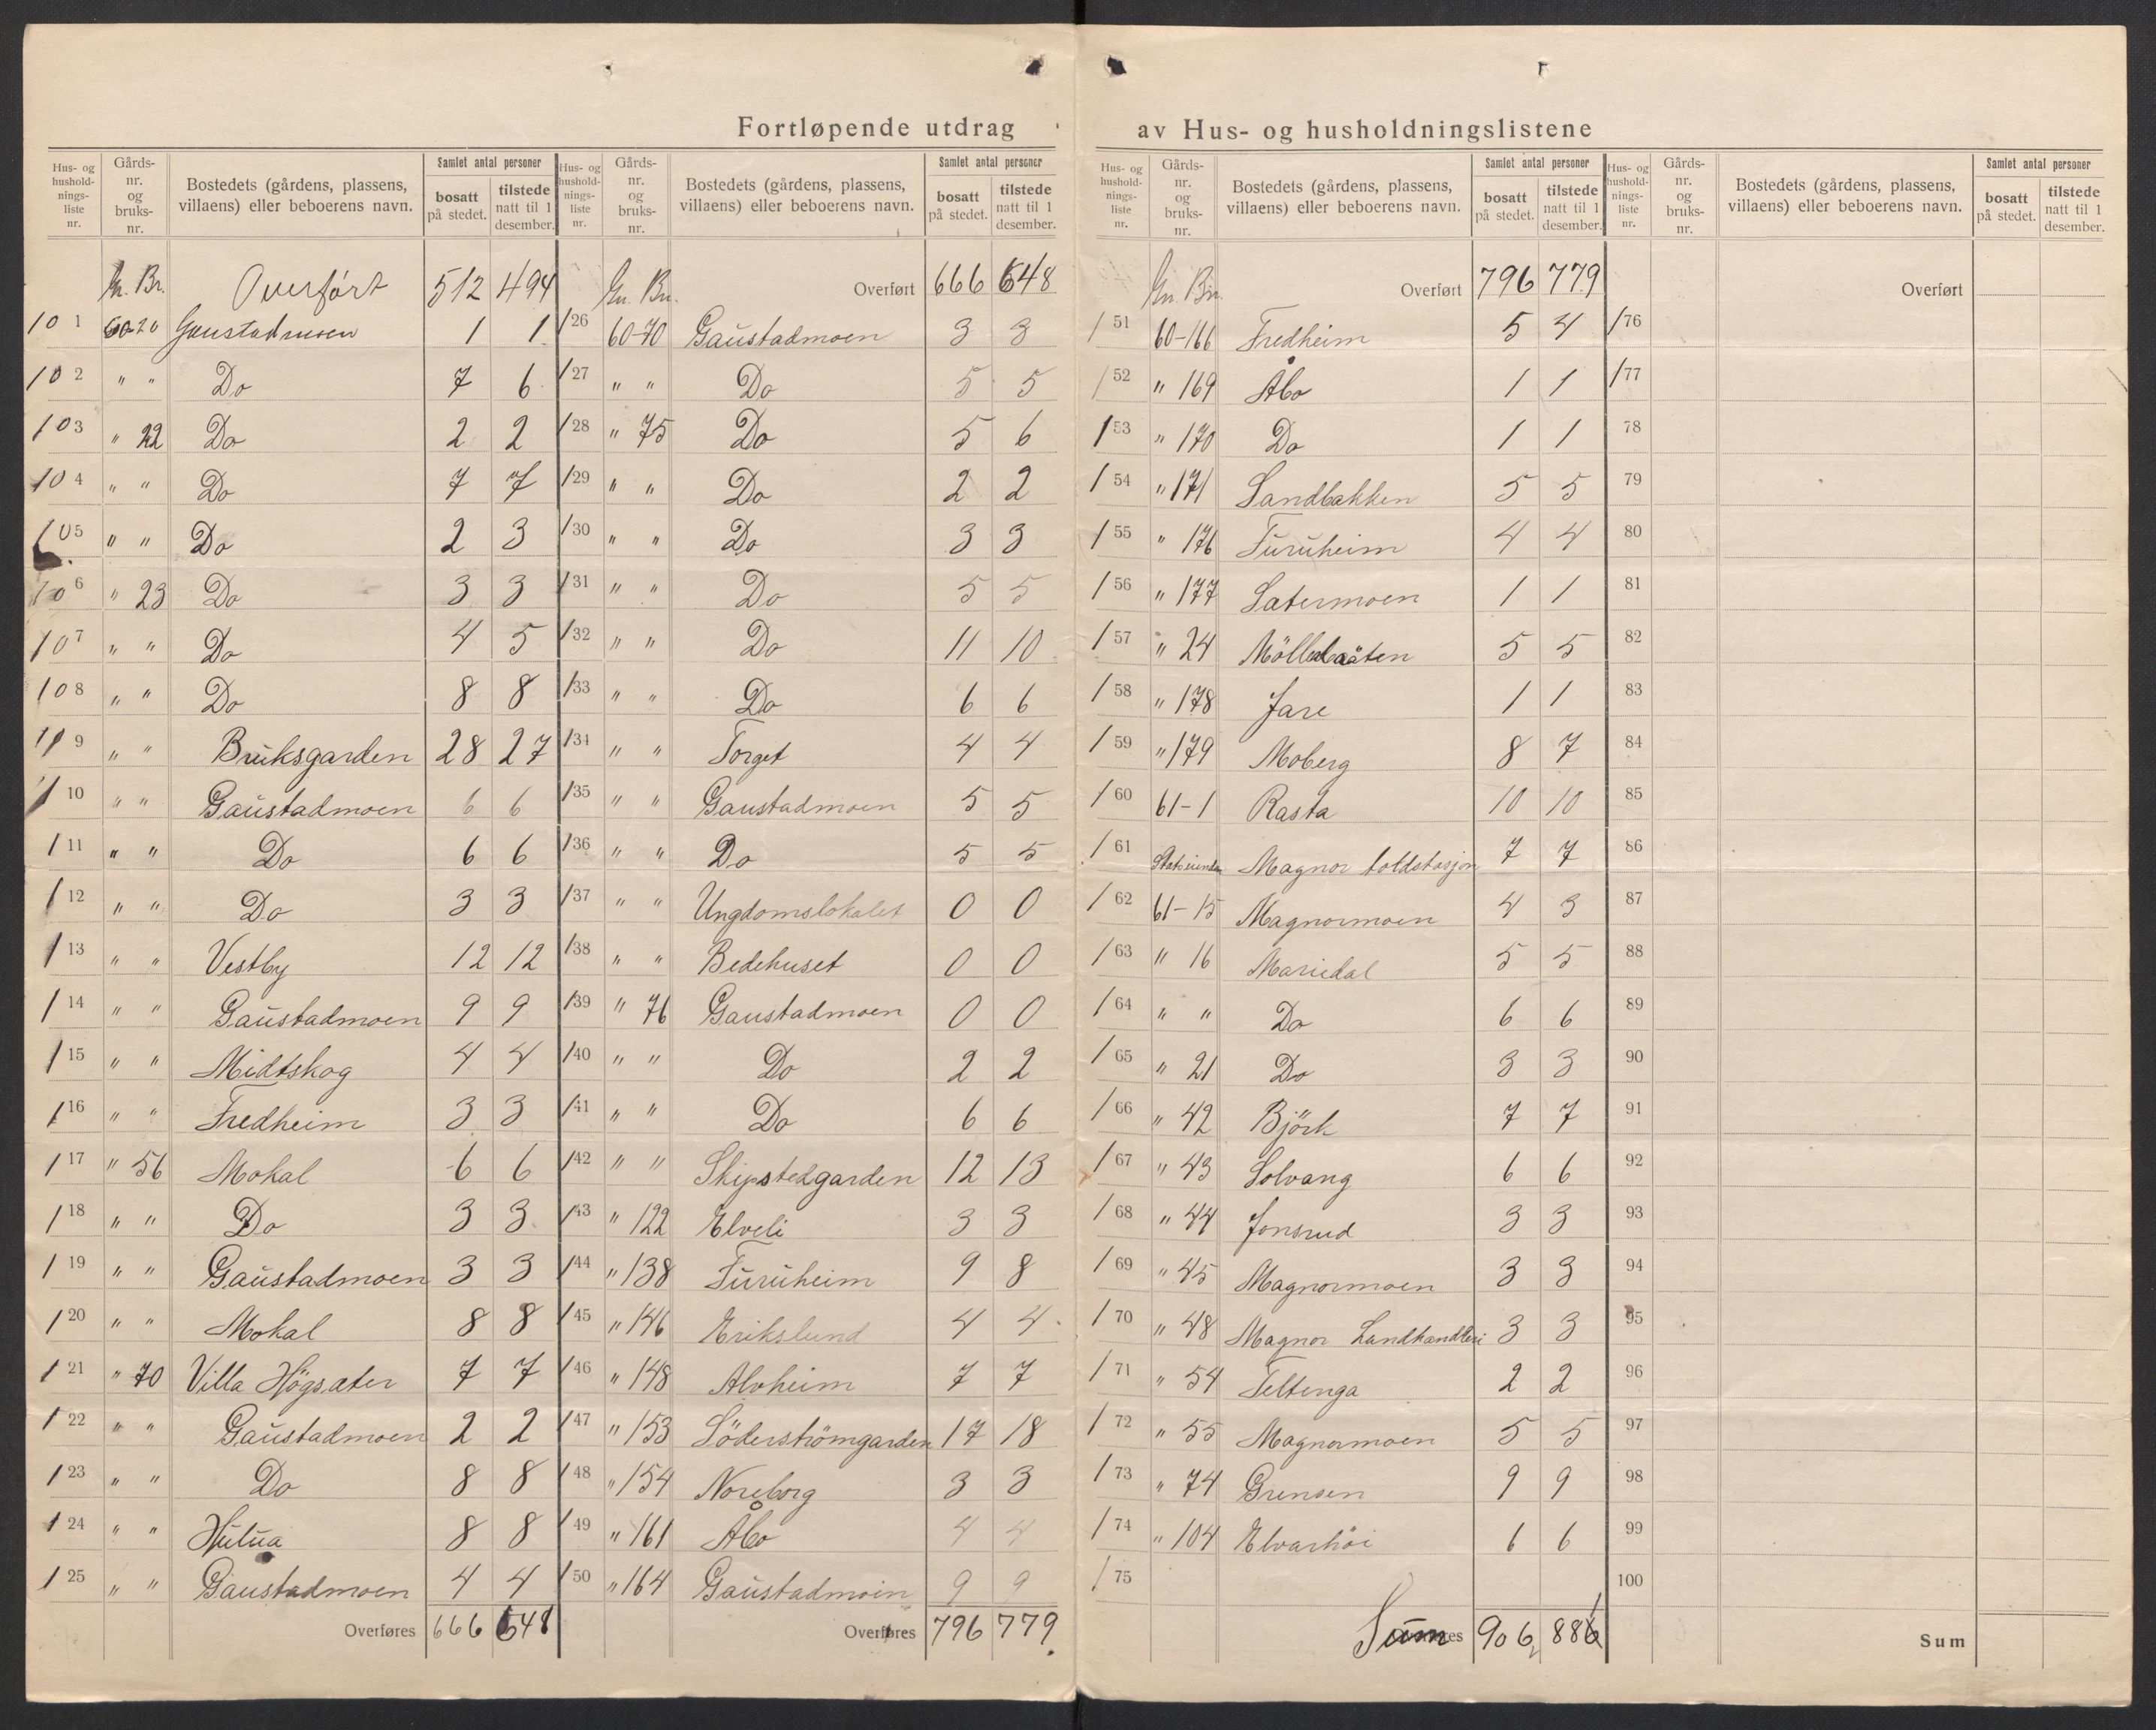 Fortløpende utdrag av Hus- og husholdningslistene
Hus- og husholdnings-liste nr. | Gårds-nr. og bruks-nr. | Bostedets (gårdens, plassens, villaens) eller beboerens navn. | Samlet antal personer | bosatt på stedet. | tilstede natt til 1 desember.
Gn. Br. Overført 512 494
101 60-20 Gaustadmoen 1 1
102 " " Do 7 6
103 " 22 Do 2 2
104 " " Do 7 7
105 " " Do 2 3
106 " 23 Do 3 3
107 " " Do 4 5
108 " " Do 8 8
119 " " Bruksgarden 28 27
110 " " Gaustadmoen 6 6
111 " " Do 6 6
112 " " Do 3 3
113 " " Vestby 12 12
114 " " Gaustadmoen 9 9
115 " " Midtskog 4 4
116 " " Fredheim 3 3
117 " 56 Mokal 6 6
118 " " Do 3 3
119 " " Gaustadmoen 3 3
120 " " Mokal 8 8
121 " 70 Villa Högsæter 7 7
122 " " Gaustadmoen 2 2
123 " " Do 8 8
124 " " Hulua 8 8
125 " " Gaustadmoen 4 4
Overføres 666 648
Hus- og husholdnings-liste nr. | Gårds-nr. og bruks-nr. | Bostedets (gårdens, plassens, villaens) eller beboerens navn. | Samlet antal personer | bosatt på stedet. | tilstede natt til 1 desember.
Gn. Bn. Overført 666 648
126 60-70 Gaustadmoen 3 3
127 " " Do 5 5
128 " 75 Do 5 6
129 " " Do 2 2
130 " " Do 3 3
131 " " Do 5 5
132 " " Do 11 10
133 " " Do 6 6
134 " " Torget 4 4
135 " " Gaustadmoen 5 5
136 " " Do 5 5
137 " " Ungdomslokalet 0 0
138 " " Bedehuset 0 0
139 " 76 Gaustadmoen 0 0
140 " " Do 2 2
141 " " Do 6 6
142 " " Skipstedgarden 12 13
143 " 122 Elveli 3 3
144 " 138 Furuheim 9 8
145 " 146 Erikslund 4 4
146 " 148 Alvheim 7 7
147 " 153 Söderströmgarden 17 18
148 " 154 Noreborg 3 3
149 " 161 Åbo 4 4
150 " 164 Gaustadmoin 9 9
Overføres 796 779
Hus- og husholdnings-liste nr. | Gårds-nr. og bruks-nr. | Bostedets (gårdens, plassens, villaens) eller beboerens navn. | Samlet antal personer | bosatt på stedet. | tilstede natt til 1 desember.
Gn. Bn. Overført 796 779
151 60-166 Fredheim 5 4
152 " 169 Åbo 1 1
153 " 170 Do 1 1
154 " 171 Sandbakken 5 5
155 " 176 Furuheim 4 4
156 " 177 Satermoen 1 1
157 " 24 5 5
158 " 178 Jare 1 1
159 " 179 Moberg 8 7
160 61-1 Rasta 10 10
161 Magnor toldstasjon 7 7
162 61-15 Magnormoen 4 3
163 " 16 Mariedal 5 5
164 " " Do 6 6
165 " 21 Do 3 3
166 " 42 Björk 7 7
167 " 43 Solvang 6 6
168 " 44 Jonsrud 3 3
169 " 45 Magnormoen 3 3
170 " 48 Magnor Landhandleri 3 3
171 " 54 Teltenga 2 2
172 " 55 Magnormoen 5 5
173 " 74 Grensen 9 9
174 " 104 Elvarhöi 6 6
175
Sum 906 886
Hus- og husholdnings-liste nr. | Gårds-nr. og bruks-nr. | Bostedets (gårdens, plassens, villaens) eller beboerens navn. | Samlet antal personer | bosatt på stedet. | tilstede natt til 1 desember.
Overført
176
177
78
79
80
81
82
83
84
85
86
87
88
89
90
91
92
93
94
95
96
97
98
99
100
Sum